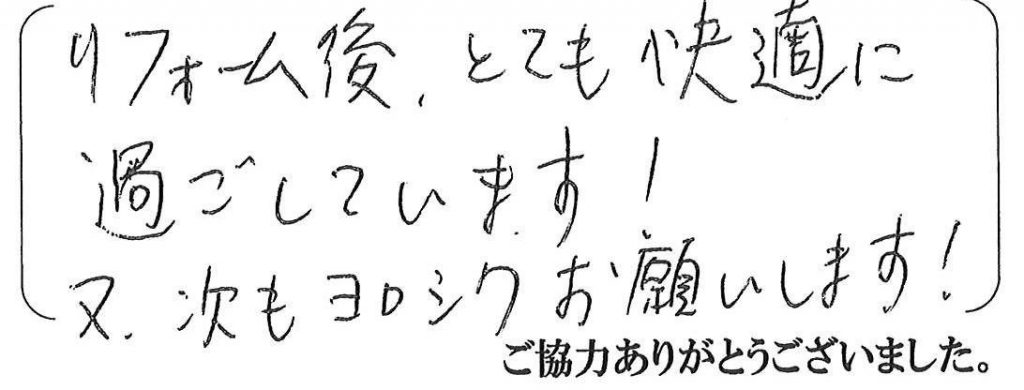 リフォーム後、とても快適に
過ごしています!
又、次もヨロシクお願いします!
ご協力ありがとうございました。